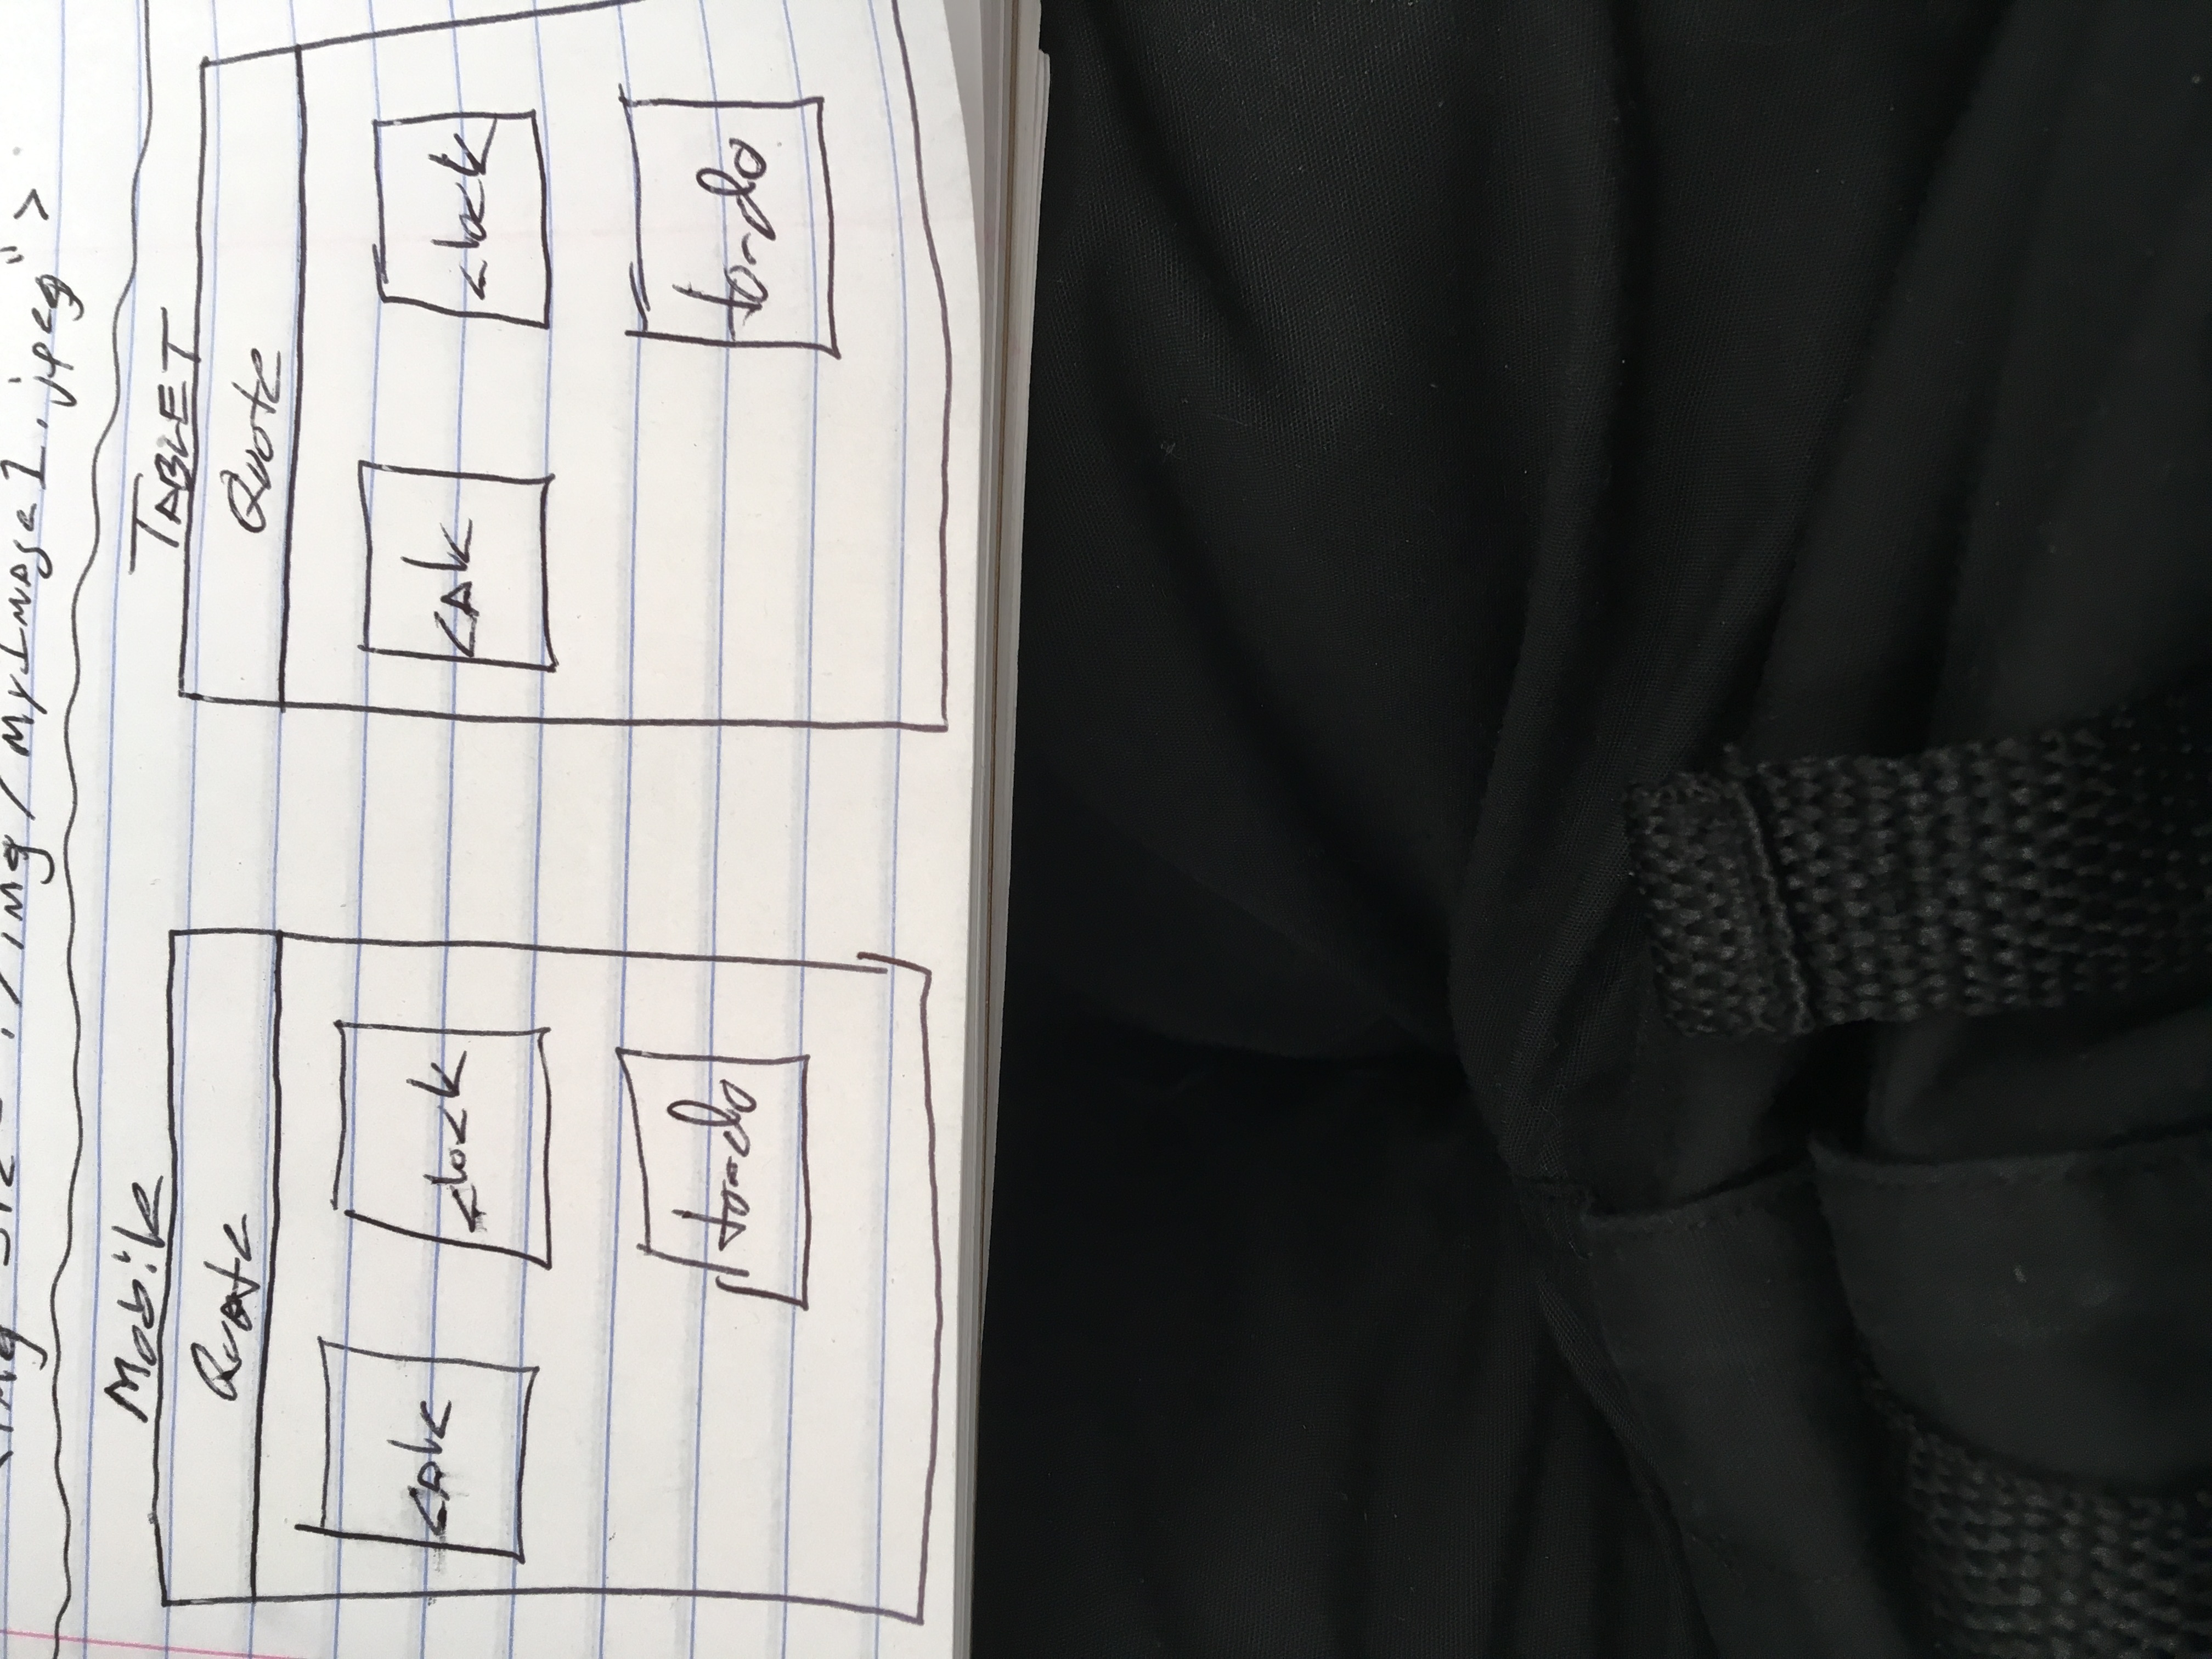 <img src="./img/myImage1.jpeg">
Mobile
Quote
calc
clock
to-do
TABLET
Quote
calc
clock
to-do